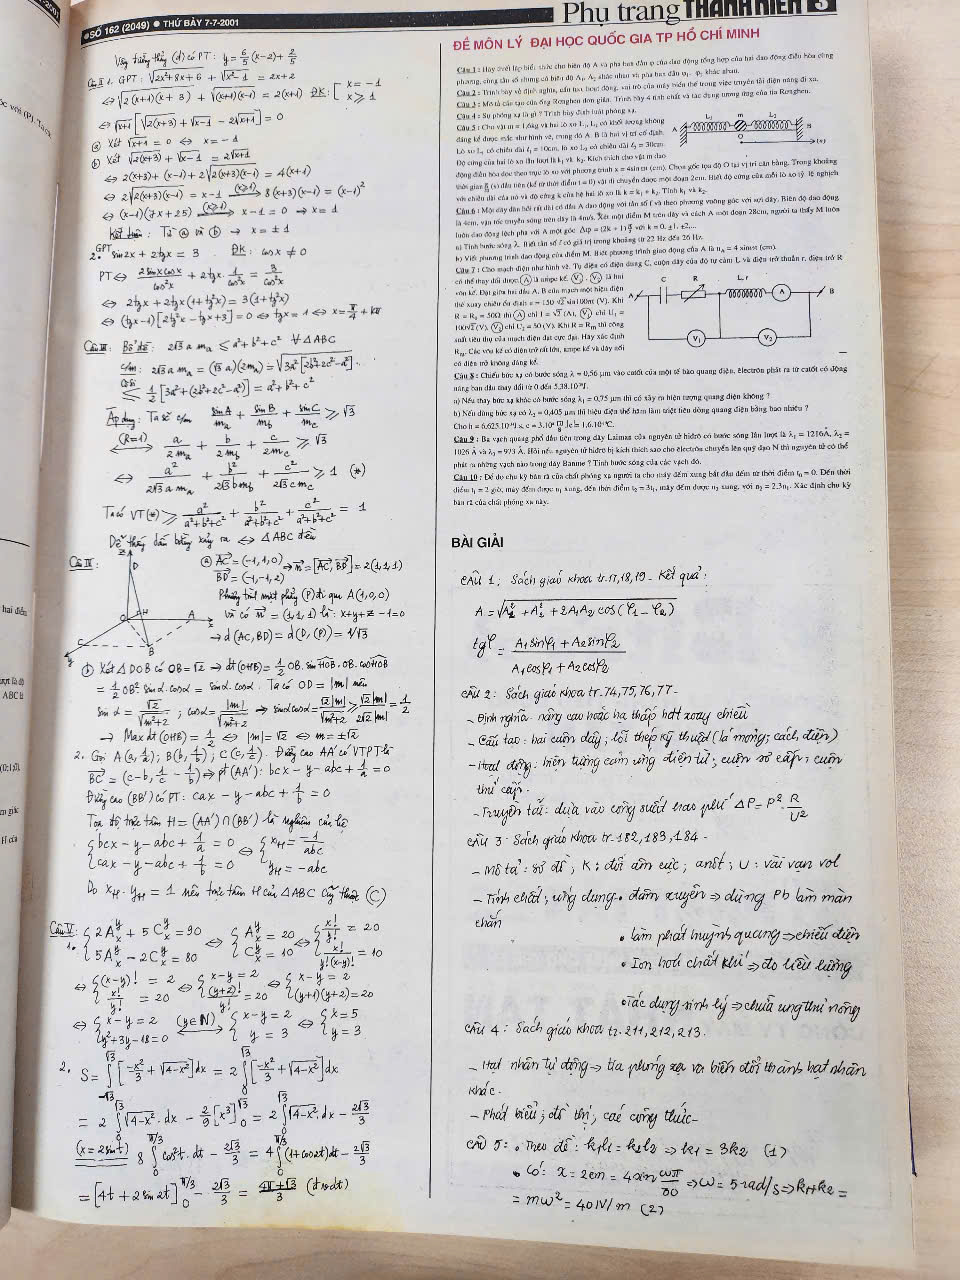 SỐ 162 (2049) ● THỨ BẢY 7-7-2001
Phụ trang THANH NIÊN 3
Vậy đường thẳng (d) có PT: y = 6/5 (x-2) + 2/5
Câu II 1. GPT: √(2x²+8x+6) + √(x²-1) = 2x+2
⇔ √(2(x+1)(x+3)) + √((x+1)(x-1)) = 2(x+1) ĐK: [x = -1; x ≥ 1
⇔ √(x+1) [√(2(x+3)) + √(x-1) - 2√(x+1)] = 0
ⓐ Xét √(x+1) = 0 ⇔ x = -1
ⓑ Xét √(2(x+3)) + √(x-1) = 2√(x+1)
⇔ 2(x+3) + (x-1) + 2√(2(x+3)(x-1)) = 4(x+1)
⇔ 2√(2(x+3)(x-1)) = x-1 ⇔ (x≥1) 8(x+3)(x-1) = (x-1)²
⇔ (x-1)(7x+25) ⇔ (x≥1) x-1 = 0 ⇒ x = 1
Kết luận: Từ ⓐ và ⓑ → x = ±1
2. GPT sin2x + 2tgx = 3 ĐK: cosx ≠ 0
PT ⇔ 2sinxcosx/cos²x + 2tgx · 1/cos²x = 3/cos²x
⇔ 2tgx + 2tgx(1+tg²x) = 3(1+tg²x)
⇔ (tgx-1)[2tg²x - tgx + 3] = 0 ⇔ tgx = 1 ⇔ x = π/4 + kπ
Câu III: Bổ đề: 2√3 a mₐ ≤ a²+b²+c² ∀ΔABC
c/m: 2√3 a mₐ = (√3 a)(2mₐ) = √(3a²[2b²+2c²-a²])
Côsi ≤ 1/2 [3a²+(2b²+2c²-a²)] = a²+b²+c²
Áp dụng: Ta sẽ c/m sinA/mₐ + sinB/m_b + sinC/m_c ≥ √3
⇔ (R=1) a/2mₐ + b/2m_b + c/2m_c ≥ √3
⇔ a²/2√3amₐ + b²/2√3bm_b + c²/2√3cm_c ≥ 1 (*)
Ta có VT(*) ≥ a²/(a²+b²+c²) + b²/(a²+b²+c²) + c²/(a²+b²+c²) = 1
Dễ thấy dấu bằng xảy ra ⇔ ΔABC đều
Câu IV:
Z D O H A C B y
ⓐ AC = (-1,1,0) BD = (-1,-1,2) ⇒ n = [AC, BD] = 2(1,1,1)
Phương trình mặt phẳng (P) đi qua A(1,0,0)
và có n = (1,1,1) là: x+y+z-1=0
→ d(AC,BD) = d(D,(P)) = 1/√3
ⓑ Xét ΔDOB có OB=√2 ⇒ dt(OHB) = 1/2 OB.sinHOB.OB.cosHOB
= 1/2 OB² sinα.cosα = sinα.cosα. Ta có OD = |m| nên
sinα = √2/√(m²+2); cosα = |m|/√(m²+2) ⇒ sinαcosα = √2|m|/(m²+2) ≥ √2|m|/2√2|m| = 1/2
→ Max dt(OHB) = 1/2 ⇔ |m| = √2 ⇔ m = ±√2
2. Gọi A(a,1/a); B(b,1/b); C(c,1/c). Đường cao AA' có VTPT là
BC = (c-b, 1/c - 1/b) ⇒ pt(AA'): bcx - y - abc + 1/a = 0
Đường cao (BB') có PT: cax - y - abc + 1/b = 0
Tọa độ trực tâm H = (AA') ∩ (BB') là nghiệm của hệ
{bcx - y - abc + 1/a = 0; cax - y - abc + 1/b = 0 ⇔ {x_H = -1/abc; y_H = -abc
Do x_H · y_H = 1 nên trực tâm H của ΔABC cũng thuộc (C)
Câu V: 1. {2A_x^y + 5C_x^y = 90; 5A_x^y - 2C_x^y = 80 ⇔ {A_x^y = 20; C_x^y = 10 ⇔ {x!/y! = 20; x!/y!(x-y)! = 10
⇔ {(x-y)! = 2; x!/y! = 20 ⇔ {x-y = 2; (y+2)!/y! = 20 ⇔ {x-y = 2; (y+1)(y+2) = 20
⇔ {x-y = 2; y²+3y-18=0 ⇔ (y∈N) {x-y = 2; y = 3 ⇔ {x=5; y=3
2. S = ∫_{-√3}^{√3} [-x²/3 + √(4-x²)] dx = 2∫_0^{√3} [-x²/3 + √(4-x²)] dx
= 2∫_0^{√3} √(4-x²).dx - 2/9 [x³]_0^{√3} = 2∫_0^{√3} √(4-x²).dx - 2√3/3
(x=2sint) 8∫_0^{π/3} cos²t.dt - 2√3/3 = 4∫_0^{π/3} (1+cos2t)dt - 2√3/3
= [4t + 2sin2t]_0^{π/3} - 2√3/3 = (4π+√3)/3 (đvdt)
ĐỀ MÔN LÝ ĐẠI HỌC QUỐC GIA TP HỒ CHÍ MINH
Câu 1 : Hãy thiết lập biểu thức cho biên độ A và pha ban đầu φ của dao động tổng hợp của hai dao động điều hòa cùng
phương, cùng tần số nhưng có biên độ A₁, A₂ khác nhau và pha ban đầu φ₁, φ₂ khác nhau.
Câu 2 : Trình bày về định nghĩa, cấu tạo, hoạt động, vai trò của máy biến thế trong việc truyền tải điện năng đi xa.
Câu 3 : Mô tả cấu tạo của ống Rơnghen đơn giản. Trình bày 4 tính chất và tác dụng tương ứng của tia Rơnghen.
Câu 4 : Sự phóng xạ là gì ? Trình bày định luật phóng xạ.
Câu 5 : Cho vật m = 1,6kg và hai lò xo L₁, L₂ có khối lượng không
đáng kể được mắc như hình vẽ, trong đó A, B là hai vị trí cố định.
Lò xo L₁ có chiều dài l₁ = 10cm, lò xo L₂ có chiều dài l₂ = 30cm.
Độ cứng của hai lò xo lần lượt là k₁ và k₂. Kích thích cho vật m dao
động điều hòa dọc theo trục lò xo với phương trình x = 4sinωt (cm). Chọn gốc tọa độ O tại vị trí cân bằng. Trong khoảng
thời gian π/30 (s) đầu tiên (kể từ thời điểm t = 0) vật di chuyển được một đoạn 2cm. Biết độ cứng của mỗi lò xo tỷ lệ nghịch
với chiều dài của nó và độ cứng k của hệ hai lò xo là k = k₁ + k₂. Tính k₁ và k₂.
A L₁ m L₂ B O (+)
Câu 6 : Một dây đàn hồi rất dài có đầu A dao động với tần số f và theo phương vuông góc với sợi dây. Biên độ dao động
là 4cm, vận tốc truyền sóng trên dây là 4m/s. Xét một điểm M trên dây và cách A một đoạn 28cm, người ta thấy M luôn
luôn dao động lệch pha với A một góc Δφ = (2k + 1) π/2 với k = 0, ±1, ±2,...
a) Tính bước sóng λ. Biết tần số f có giá trị trong khoảng từ 22 Hz đến 26 Hz.
b) Viết phương trình dao động của điểm M. Biết phương trình dao động của A là u_A = 4 sinωt (cm).
Câu 7 : Cho mạch điện như hình vẽ. Tụ điện có điện dung C, cuộn dây có độ tự cảm L và điện trở thuần r, điện trở R
có thể thay đổi được. Ⓐ là ampe kế. V₁, V₂ là hai
vôn kế. Đặt giữa hai đầu A, B của mạch một hiệu điện
thế xoay chiều ổn định u = 150 √2 sin100πt (V). Khi
R = R₀ = 50Ω thì Ⓐ chỉ I = √2 (A), V₁ chỉ U₁ =
100√2 (V), V₂ chỉ U₂ = 50 (V). Khi R = Rₘ thì công
suất tiêu thụ của mạch điện đạt cực đại. Hãy xác định
Rₘ. Các vôn kế có điện trở rất lớn, ampe kế và dây nối
có điện trở không đáng kể.
A C R L, r A B V₁ V₂
Câu 8 : Chiếu bức xạ có bước sóng λ = 0,56 μm vào catốt của một tế bào quang điện, êlectrôn phát ra từ catốt có động
năng ban đầu thay đổi từ 0 đến 5,38.10⁻²⁰J.
a) Nếu thay bức xạ khác có bước sóng λ₁ = 0,75 μm thì có xảy ra hiện tượng quang điện không ?
b) Nếu dùng bức xạ có λ₂ = 0,405 μm thì hiệu điện thế hãm làm triệt tiêu dòng quang điện bằng bao nhiêu ?
Cho h = 6,625.10⁻³⁴J.s, c = 3.10⁸ m/s, |e| = 1,6.10⁻¹⁹C.
Câu 9 : Ba vạch quang phổ đầu tiên trong dãy Laiman của nguyên tử hiđrô có bước sóng lần lượt là λ₁ = 1216Å, λ₂ =
1026 Å và λ₃ = 973 Å. Hỏi nếu nguyên tử hiđrô bị kích thích sao cho êlectrôn chuyển lên quỹ đạo N thì nguyên tử có thể
phát ra những vạch nào trong dãy Banme ? Tính bước sóng của các vạch đó.
Câu 10 : Để đo chu kỳ bán rã của chất phóng xạ người ta cho máy đếm xung bắt đầu đếm từ thời điểm t₀ = 0. Đến thời
điểm t₁ = 2 giờ, máy đếm được n₁ xung, đến thời điểm t₂ = 3t₁, máy đếm được n₂ xung, với n₂ = 2,3n₁. Xác định chu kỳ
bán rã của chất phóng xạ này.
BÀI GIẢI
CÂU 1 : Sách giáo khoa tr.17,18,19. Kết quả:
A = √(A₁² + A₂² + 2A₁A₂ cos(φ₁ - φ₂))
tgφ = (A₁sinφ₁ + A₂sinφ₂)/(A₁cosφ₁ + A₂cosφ₂)
CÂU 2 : Sách giáo khoa tr.74,75,76,77.
- Định nghĩa: nâng cao hoặc hạ thấp hđt xoay chiều
- Cấu tạo: hai cuộn dây; lõi thép kỹ thuật (lá mỏng; cách điện)
- Hoạt động: hiện tượng cảm ứng điện từ; cuộn sơ cấp; cuộn
thứ cấp.
- Truyền tải: dựa vào công suất hao phí ΔP = P² R/U²
CÂU 3 : Sách giáo khoa tr.182,183,184.
- Mô tả: sơ đồ; K; đối âm cực; anốt; U: vài vạn vol
- Tính chất; ứng dụng • đâm xuyên ⇒ dùng Pb làm màn
chắn
• làm phát huỳnh quang ⇒ chiếu điện
• Ion hoá chất khí ⇒ đo liều lượng
• Tác dụng sinh lý ⇒ chữa ung thư nông
CÂU 4 : Sách giáo khoa tr.211,212,213.
- Hạt nhân tự động → tia phóng xạ và biến đổi thành hạt nhân
khác.
- Phát biểu; đồ thị, các công thức.
CÂU 5 : • Theo đề: k₁l₁ = k₂l₂ ⇒ k₁ = 3k₂ (1)
• Có: x = 2cm = 4sin ωπ/30 ⇒ ω = 5 rad/s ⇒ k₁+k₂ =
= mω² = 40N/m (2)